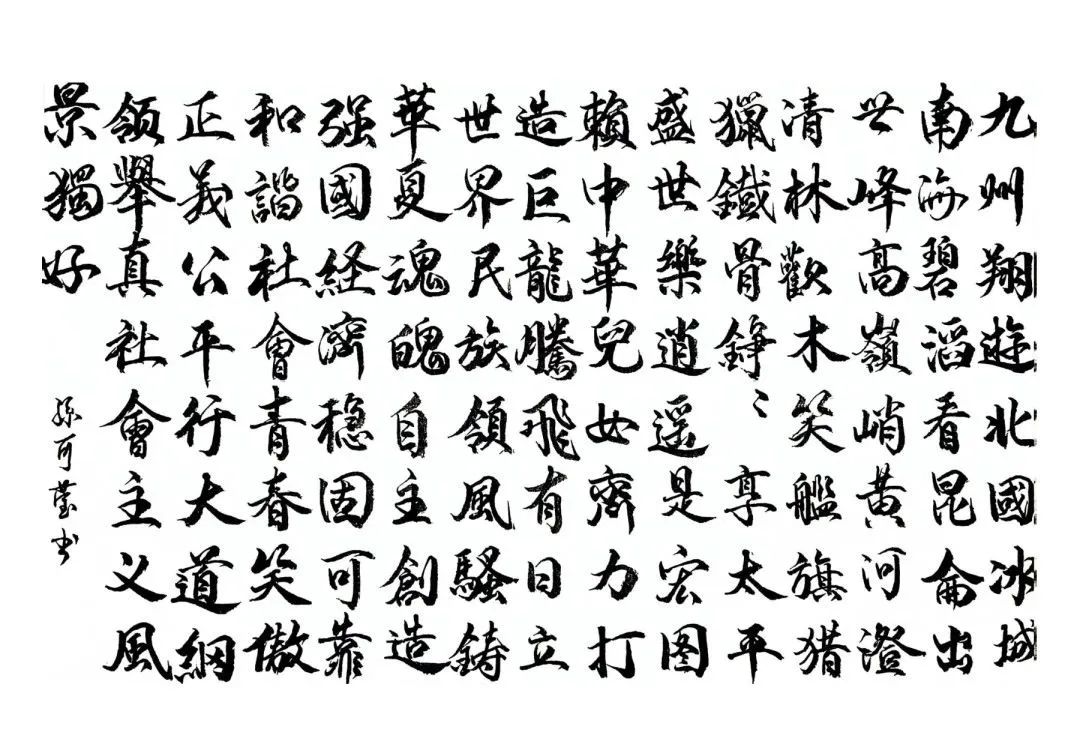 九州翔遊北國冰城
南海碧滔看昆侖出
世峰高嶺峭黃河澄
清林歡木笑艦旗猎
獵鐵骨錚〻享太平
盛世樂逍遥是宏图
賴中華兒女齊力打
造巨龍騰飛有日立
世界民族領風騷鑄
華夏魂魄自主創造
强國経濟穏固可靠
和諧社會青春笑傲
正義公平行大道綱
領舉真社會主义風
景獨好
孫可莹书